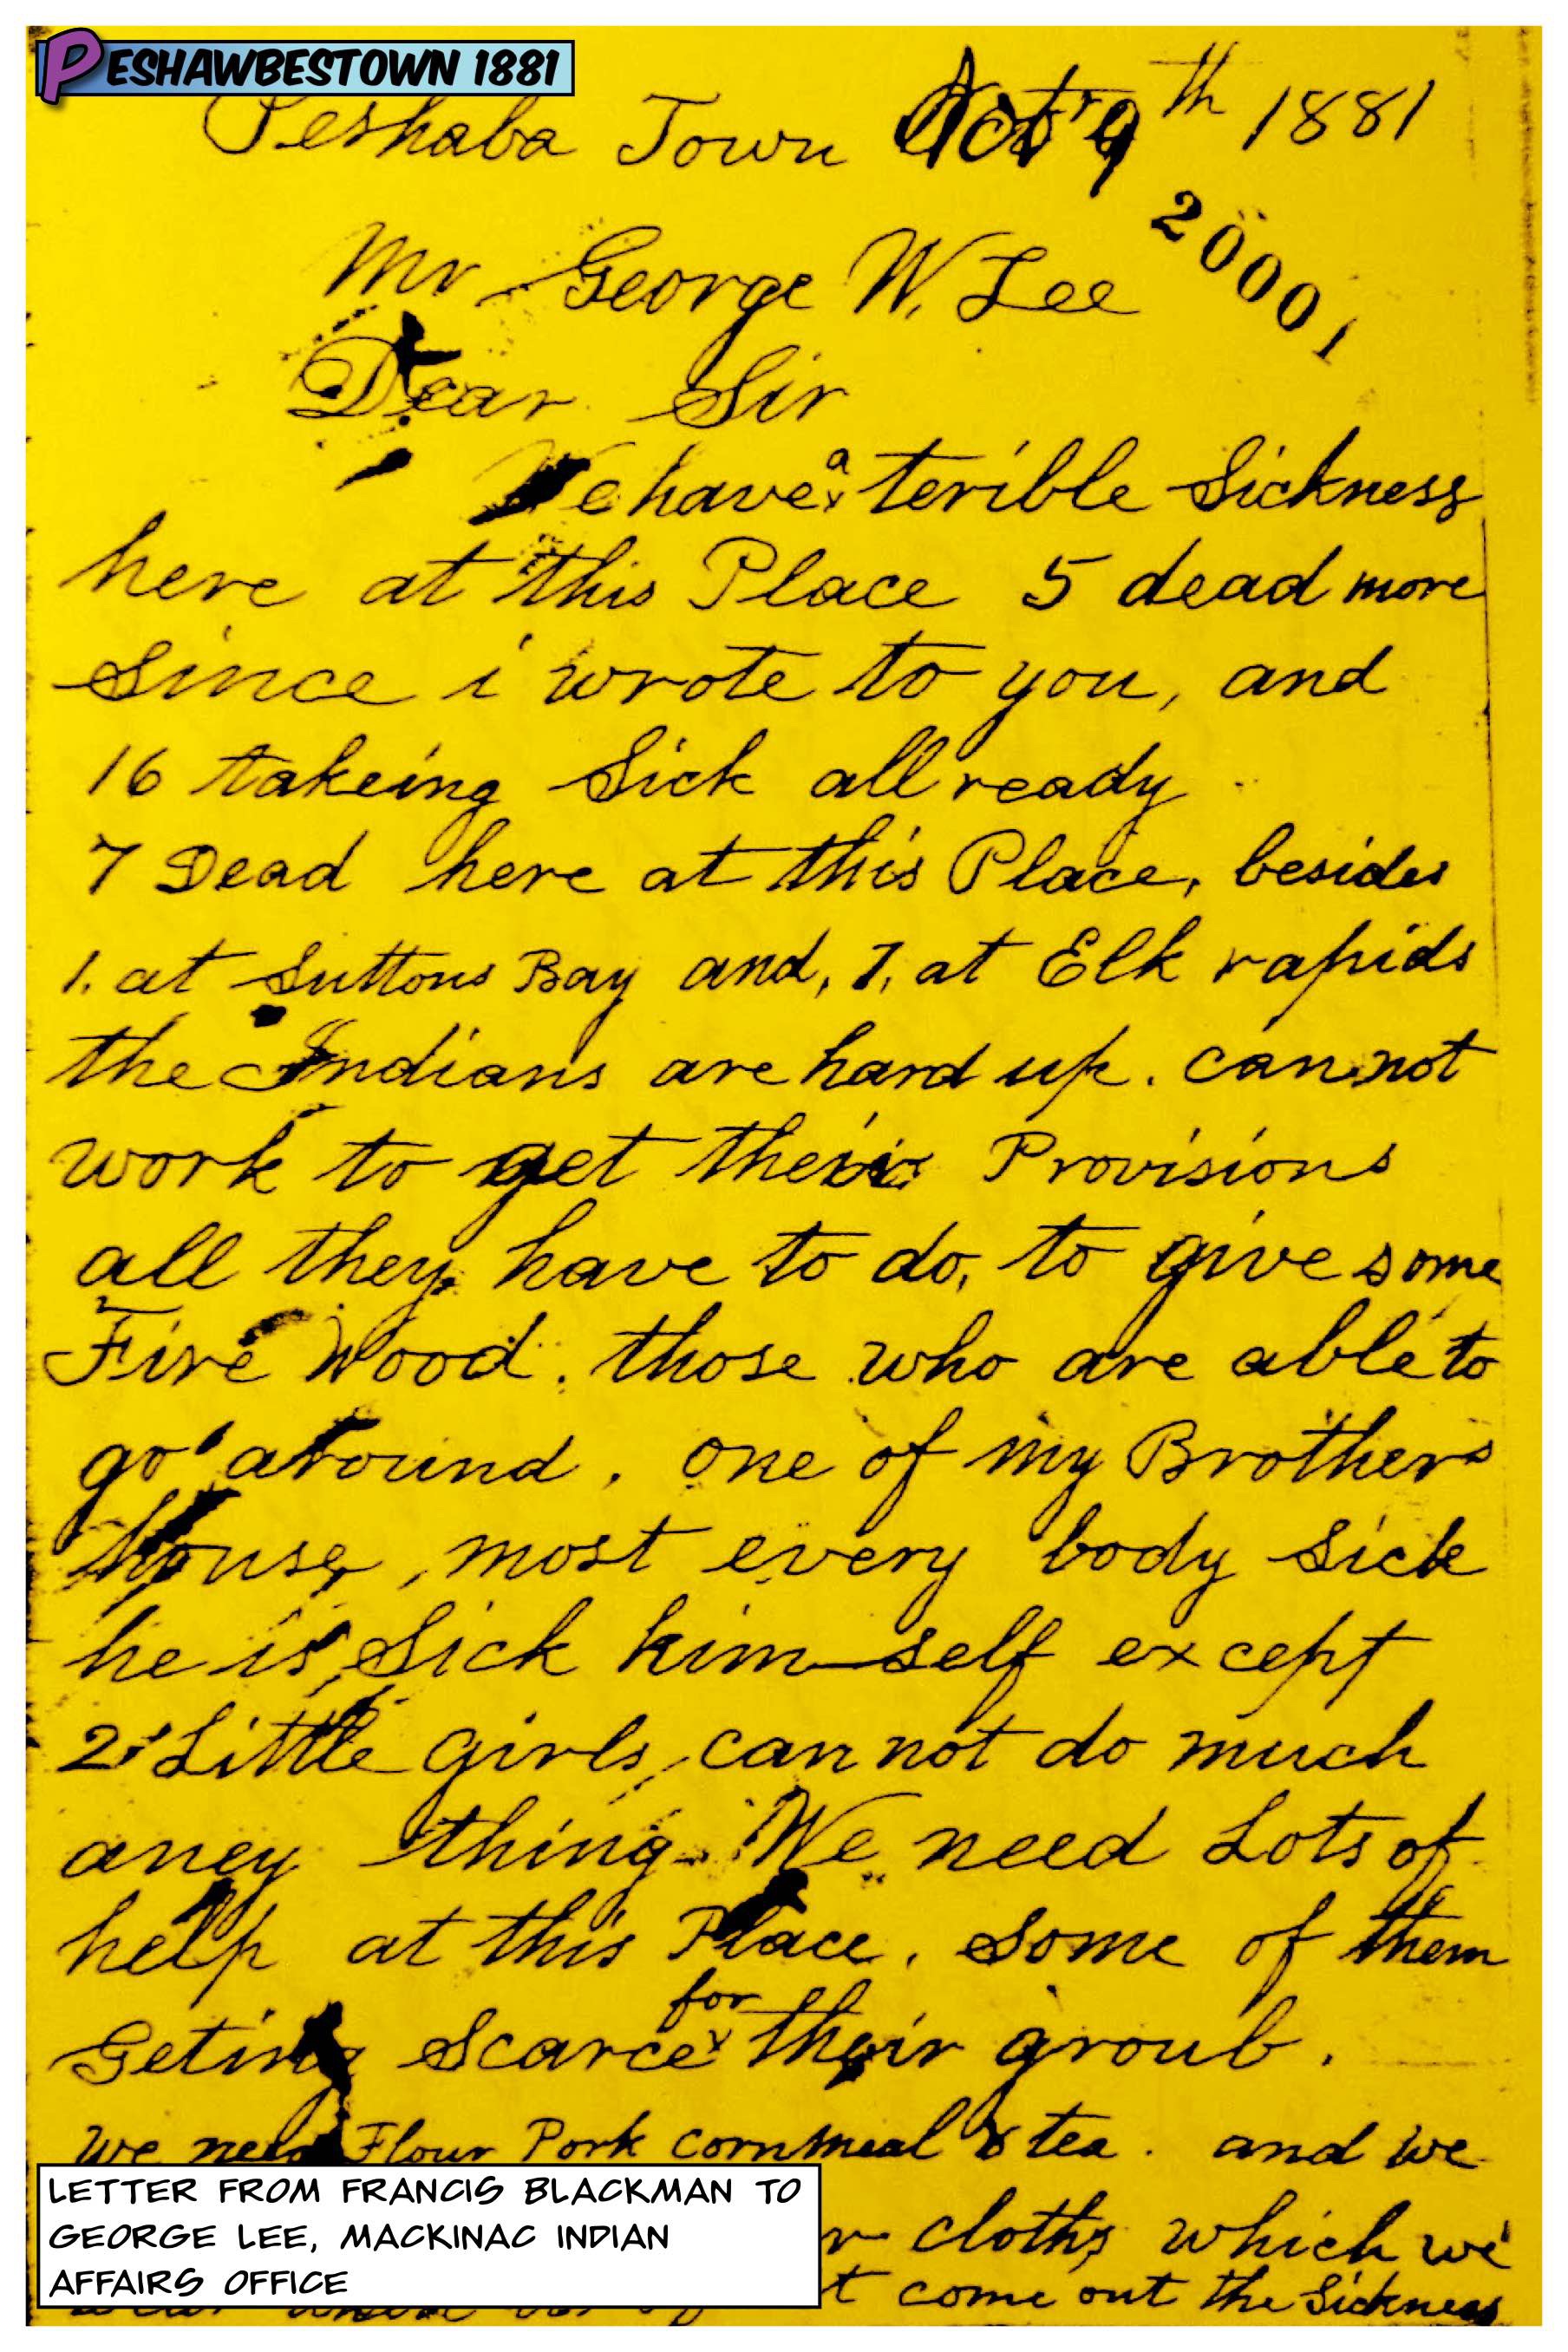 PESHAWBESTOWN 1881
Peshaba Town Oct 9th 1881
20001
Mr George W. Lee
Dear Sir
We have a terible Sickness
here at this Place 5 dead more
Since i wrote to you, and
16 takeing Sick all ready
7 Dead here at this Place, besides
1. at Suttons Bay and, 7, at Elk rapids
the Indians are hard up. can not
work to get their Provisions
all they have to do, to give some
Fire Wood. those who are able to
go around. one of my Brothers
house, most every body Sick
he is Sick him self except
2 Little girls, can not do much
aney thing. We need Lots of
help at this Place. Some of them
Geting Scarce for their groub.
We need Flour Pork cornmeal & tea. and we
cloths which we
come out the Sickness
LETTER FROM FRANCIS BLACKMAN TO
GEORGE LEE, MACKINAC INDIAN
AFFAIRS OFFICE